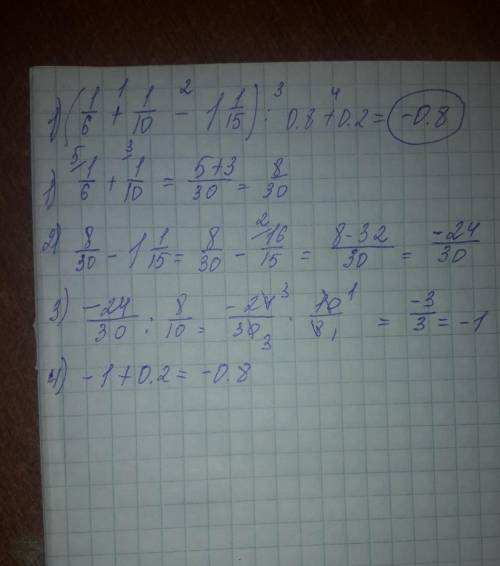 1) (1/6 + 1/10 - 1 1/15) : 0.8 + 0.2 = -0.8
1 2 3 4
1) 5/ 1/6 + 3/ 1/10 = 5+3/30 = 8/30
2) 8/30 - 1 1/15 = 8/30 - 2/ 16/15 = 8-32/30 = -24/30
3) -24/30 : 8/10 = -24 3/30 3 · 10 1/8 1 = -3/3 = -1
4) -1 + 0.2 = -0.8